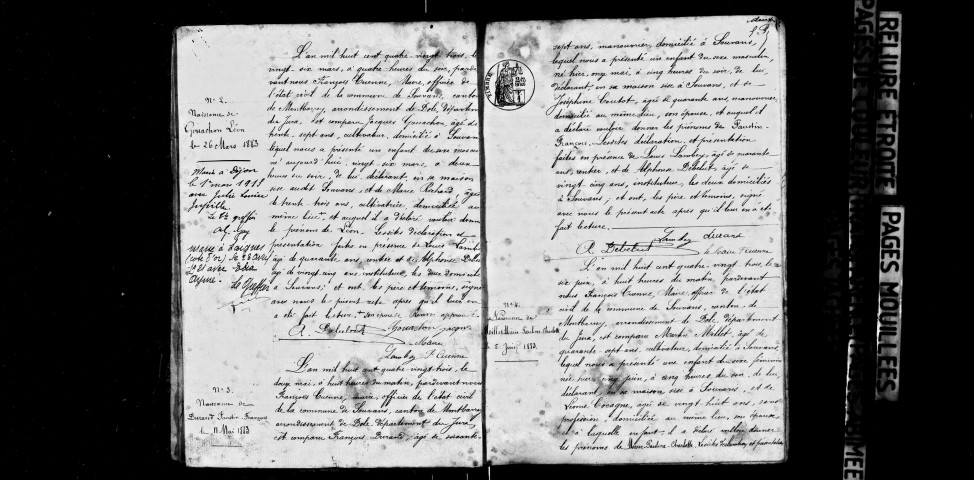 N° 2.
Naissance de
Gouachon Léon
le 26 Mars 1883
Marié à Dijon
le 1er mars 1911
avec Julie Louise
Le Gref
marié à
L'an mil huit cent quatre vingt trois, le
vingt-six mars, à quatre heures du soir, pardevant
nous François Cuenne, Maire, officier de
l'état civil de la commune de Souvans, canton
de Montbarrey, arrondissement de Dole, département
du Jura, est comparu Jacques Gouachon, âgé de
trente-sept ans, cultivateur, domicilié à Souvans
lequel nous a présenté un enfant du sexe masculin
né aujourd'hui, vingt-six mars, à deux
heures du soir, de lui déclarant, en sa maison
sise audit Souvans, et de Marie Richard, âgée
de trente trois ans, cultivatrice, domiciliée au
même lieu, et auquel il a déclaré vouloir donner
le prénom de Léon. Lesdites déclaration et
présentation faites en présence de Louis Lambey
âgé de quarante ans, rentier et de Alphonse Debelut
âgé de vingt-cinq ans, instituteur, les deux domiciliés
à Souvans; et ont, les père et témoins, signé
avec nous le présent acte après qu'il leur en
a été fait lecture.
A. Debelut Gouachon
Maire
Lambey F. Cuenne
N° 3.
Naissance de
Durand Faustin François
le 11 Mai 1883
L'an mil huit cent quatre vingt-trois, le
douze mai, à huit heures du matin, pardevant nous
François Cuenne, maire, officier de l'état civil
de la commune de Souvans, canton de Montbarrey
arrondissement de Dole, département du Jura,
est comparu François Durand, âgé de soixante-
sept ans, manouvrier, domicilié à Souvans,
lequel nous a présenté un enfant du sexe masculin,
né hier, onze mai, à cinq heures du soir, de lui,
déclarant, en sa maison sise à Souvans, et de
Joséphine Coutot, âgée de quarante ans, manouvrière,
domiciliée au même lieu, son épouse, et auquel il
a déclaré vouloir donner les prénoms de Faustin-
François. Lesdites déclaration et présentation
faites en présence de Louis Lambey, âgé de quarante
ans, rentier, et de Alphonse Debelut, âgé de
vingt-cinq ans, instituteur, les deux domiciliés
à Souvans; et ont, les père et témoins, signé
avec nous le présent acte après qu'il leur en a été
fait lecture.
Lambey durand
A. Debelut le Maire F. Cuenne
N° 4.
Naissance de
Millet Marie Pauline Charlotte
le 5 Juin 1883.
L'an mil huit cent quatre vingt trois, le
six juin, à huit heures du matin, pardevant
nous François Cuenne, Maire, officier de l'état
civil de la commune de Souvans, canton de
Montbarrey, arrondissement de Dole, département
du Jura, est comparu Martin Millet, âgé de
quarante-sept ans, cultivateur, domicilié à Souvans,
lequel nous a présenté un enfant du sexe féminin
née hier, cinq juin, à cinq heures du soir, de lui,
déclarant, en sa maison sise à Souvans, et de
Cocagne, âgée de vingt huit ans, sans
profession, domiciliée au même lieu, son épouse,
et à laquelle enfant il a déclaré vouloir donner
les prénoms de Marie-Pauline-Charlotte. Lesdites déclaration et présentation
RELIURE ETROITE
PAGES DE COULEUR
PAGES MOUILLEES